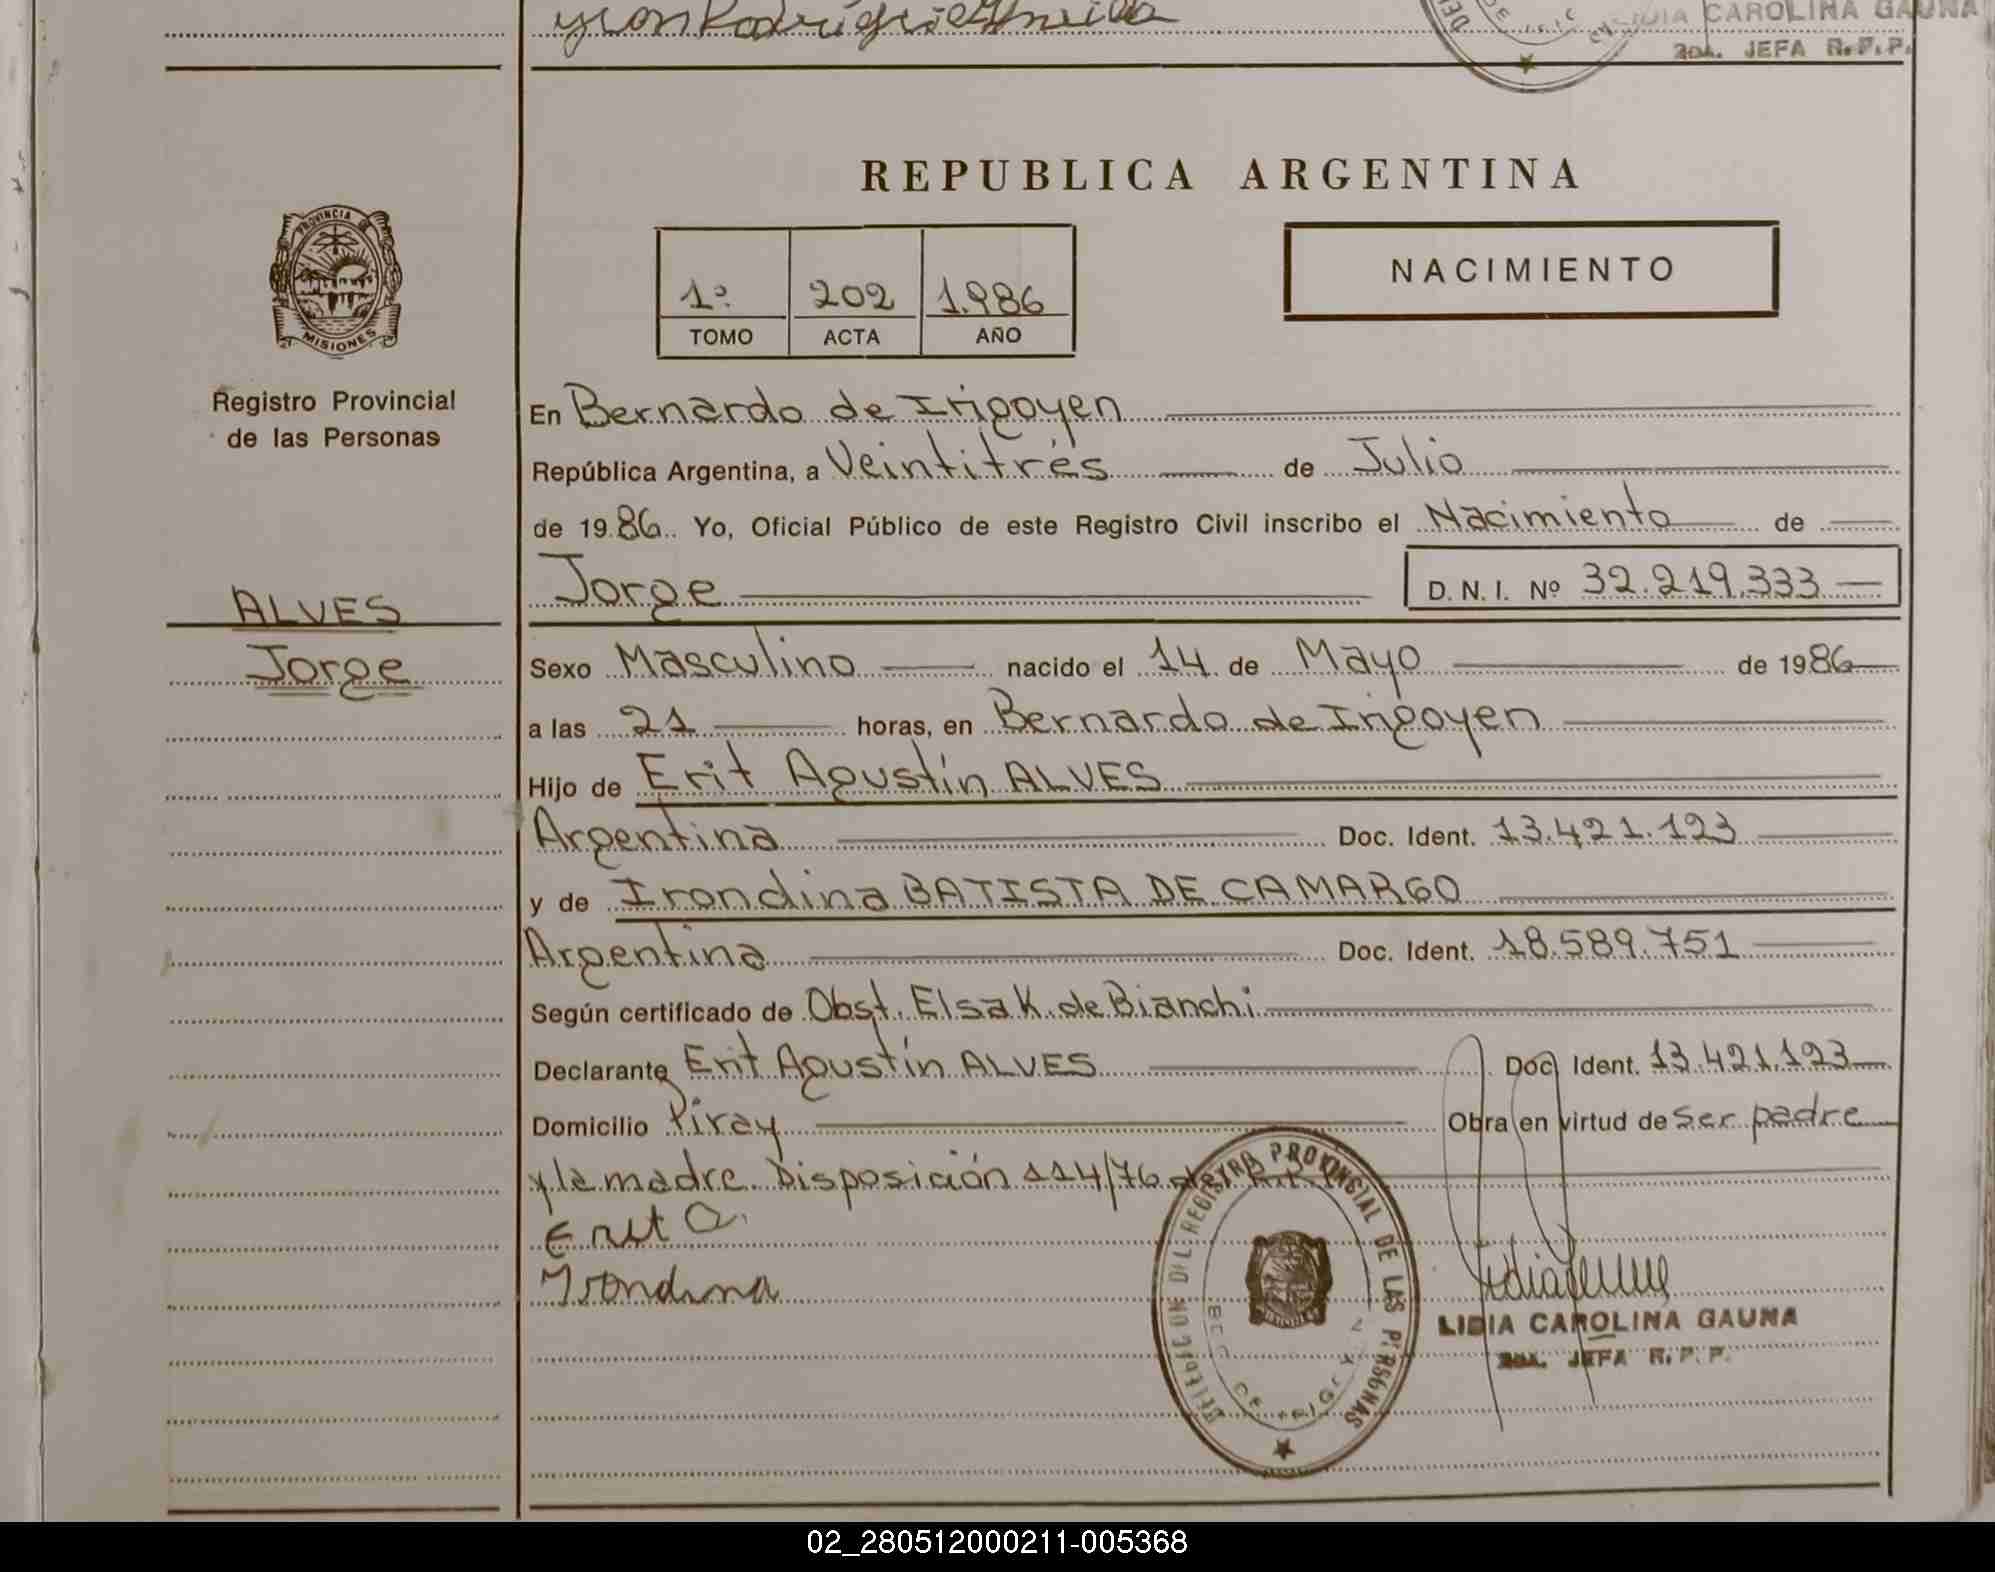 LIDIA CAROLINA GAUNA
2da. JEFA R.P.P.
REPUBLICA ARGENTINA
PROVINCIA DE
MISIONES
1º 202 1.986
TOMO ACTA AÑO
NACIMIENTO
Registro Provincial
de las Personas
En Bernardo de Irigoyen
República Argentina, a Veintitrés de Julio
de 1986. Yo, Oficial Público de este Registro Civil inscribo el Nacimiento de
Jorge D. N. I. Nº 32.219.333
ALVES
Jorge
Sexo Masculino nacido el 14 de Mayo de 1986
a las 21 horas, en Bernardo de Irigoyen
Hijo de Erit Agustín ALVES
Argentina Doc. Ident. 13.421.123
y de Irondina BATISTA DE CAMARGO
Argentina Doc. Ident. 18.589.751
Según certificado de Obst. Elsa K. de Bianchi
Declarante Erit Agustín ALVES Doc. Ident. 13.421.123
Domicilio Piray Obra en virtud de ser padre
y la madre. Disposición 114/76 del R.P.P.
Erit A.
Irondina
DELEGACION DEL REGISTRO PROVINCIAL DE LAS PERSONAS
LIDIA CAROLINA GAUNA
2da. JEFA R. P. P.
02_280512000211-005368